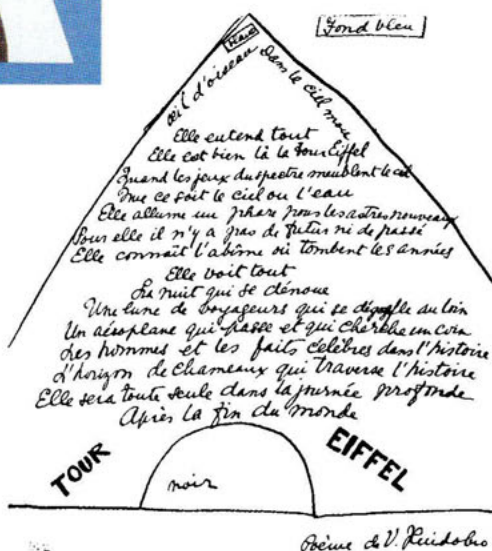 Fond bleu
Haut
œil d'oiseau dans le ciel mou
Elle entend tout
Elle est bien là la Tour Eiffel
Quand les jeux du spectre meublent le ciel
Que ce soit le ciel ou l'eau
Elle allume un phare pour les astres nouveaux
Pour elle il n'y a pas de futur ni de passé
Elle connaît l'abîme où tombent les années
Elle voit tout
La nuit qui se dénoue
Une lune de voyageurs qui se dégonfle au loin
Un aéroplane qui passe et qui cherche un coin
Les hommes et les faits célèbres dans l'histoire
L'horizon de chameaux qui traverse l'histoire
Elle sera toute seule dans la journée profonde
Après la fin du monde
TOUR EIFFEL
noir
Poème de V. Huidobro